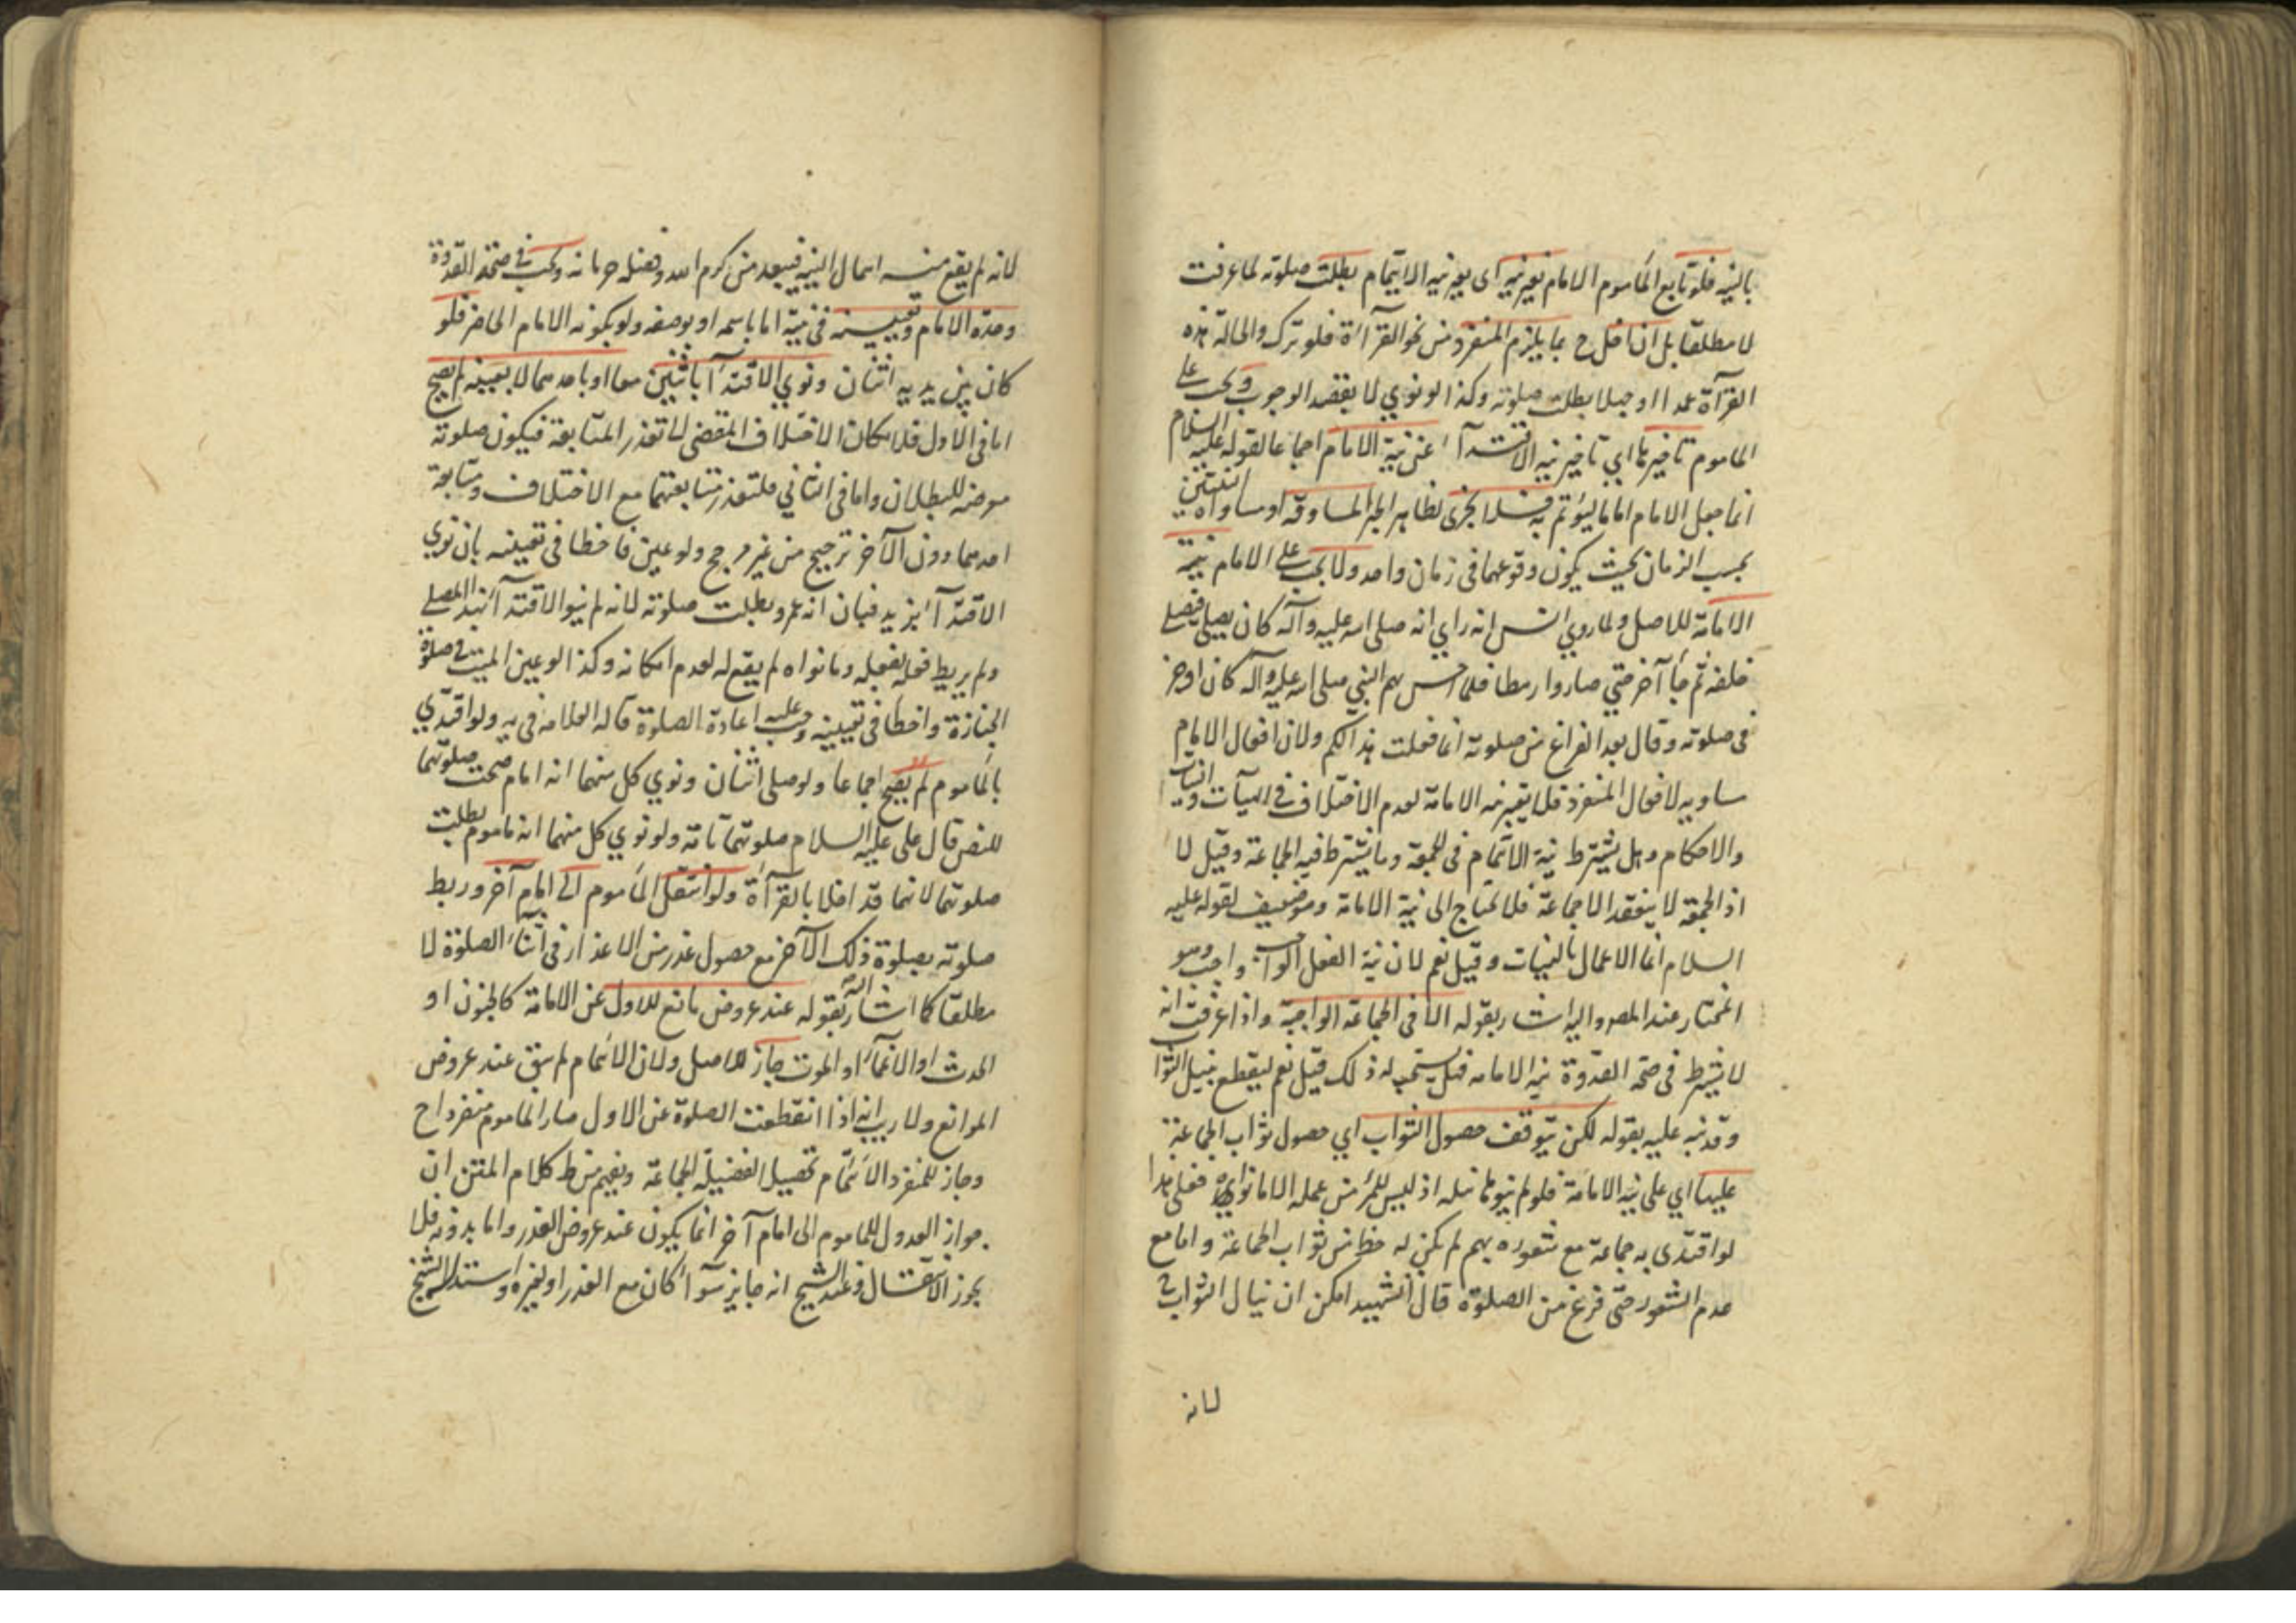 بالنيه فلو تابع المأموم الامام بغير نيه اى بغير نيه الايتمام بطلت صلوته لما عرفت
لا مطلقا بل ان اخل ح بما يلزم المنفرد من نحو القرآءة فلو ترك والحالة هذه
القرآءة عمدا او جهلا بطلت صلوته وكذا لو نوي لا بقصد الوجوب ويجب على
الماموم تاخيرها اي تاخير نيه الاقتدآء عن نية الامام اجماعا لقوله عليه السلام
انما جعل الامام اماما ليؤتم به فلا تجزى لظاهر الخبر المساوقة او مساواة النيتين
بحسب الزمان بحيث يكون وقوعهما فى زمان واحد ولا يجب على الامام نية
الامامة للاصل ولما روي انس انه راي انه صلى الله عليه وآله كان يصلي فصلى
خلفه ثم جآء آخر حتى صاروا رهطا فلما احس بهم النبي صلى الله عليه وآله كان اوجز
فى صلوته وقال بعد الفراغ من صلوته انما فعلت هذا لكم ولان افعال الامام
مساويه لافعال المنفرد فلا يعتبر نيه الامامة لعدم الاختلاف فى الهيآت والنيات
والاحكام وهل يشترط نية الائتمام فى الجمعة وما يشترط فيه الجماعة وقيل لا
اذ الجمعة لا ينعقد الا جماعة فلا تحتاج الى نية الامامة وهو ضعيف لقوله عليه
السلام انما الاعمال بالنيات وقيل نعم لان نية الفعل الواجب واجب وهو
المختار عند المصر واليه اشار بقوله الا فى الجماعة الواجبة واذا عرفت انه
لا يشترط فى صحة القدوة نية الامامه فهل يستحب له ذلك قيل نعم ليقطع بنيل الثواب
وقد نبه عليه بقوله لكن يتوقف حصول الثواب اي حصول ثواب الجماعة
عليها اي على نية الامامة فلو لم ينوها لم ينله اذ ليس للمرء من عمله الا ما نواه فعلى هذا
لو اقتدى به جماعة مع شعوره بهم لم يكن له حظ من ثواب الجماعة واما مع
عدم الشعور حتى فرغ من الصلوة قال الشهيد امكن ان ينال الثواب ح
لانه
لانه لم يقع منه اهمال النية فيبعد من كرم الله وفضله حرمانه ويجب فى صحة القدوة
وحدة الامام وتعيينه فى نية اما باسمه او بوصفه ولو بكونه الامام الحاضر فلو
كان بين يديه اثنان ونوي الاقتدآء باثنين معا او باحدهما لا بعينه لم يصح
اما فى الاول فلامكان الاختلاف المقضى لتعذر المتابعة فيكون صلوته
معرضه للبطلان واما فى الثاني فلتعذر متابعتهما مع الاختلاف ومتابعة
احدهما دون الآخر ترجيح من غير مرجح ولو عين فاخطا فى تعيينه بان نوي
الاقتدآء بزيد فبان انه عمرو بطلت صلوته لانه لم ينو الاقتدآء بهذا المصلى
ولم يربط فعله بفعله وما نواه لم يقع له لعدم امكانه وكذا لو عين الميت فى صلوة
الجنازة واخطا فى تعيينه وجب عليه اعادة الصلوة قاله العلامه فى يه ولو اقتدي
بالمأموم لم يصح اجماعا ولو صلى اثنان ونوي كل منهما انه امام صحت صلوتهما
للنص قال على عليه السلام صلوتهما تامة ولو نوي كل منهما انه ماموم بطلت
صلوتهما لانهما قد اخلا بالقرآءة ولو انتقل المأموم الى امام آخر وربط
صلوته بصلوة ذلك الآخر مع حصول عذر من الاعذار فى اثنآء الصلوة لا
مطلقا كما اشار اليه بقوله عند عروض مانع للاول عن الامامة كالجنون او
الحدث او الاغمآء او الموت جاز للاصل ولان الائتمام لم يبق عند عروض
الموانع ولا ريب انه اذا انقطعت الصلوة عن الاول صار الماموم منفردا ح
وجاز للمنفرد الائتمام تحصيل الفضيلة الجماعة ويفهم من ط كلام المتن ان
جواز العدول للماموم الى امام آخر انما يكون عند عروض العذر واما بدونه فلا
يجوز الانتقال وعند الشيخ انه جايز سوآء كان مع العذر او لغيره واستدل الشيخ